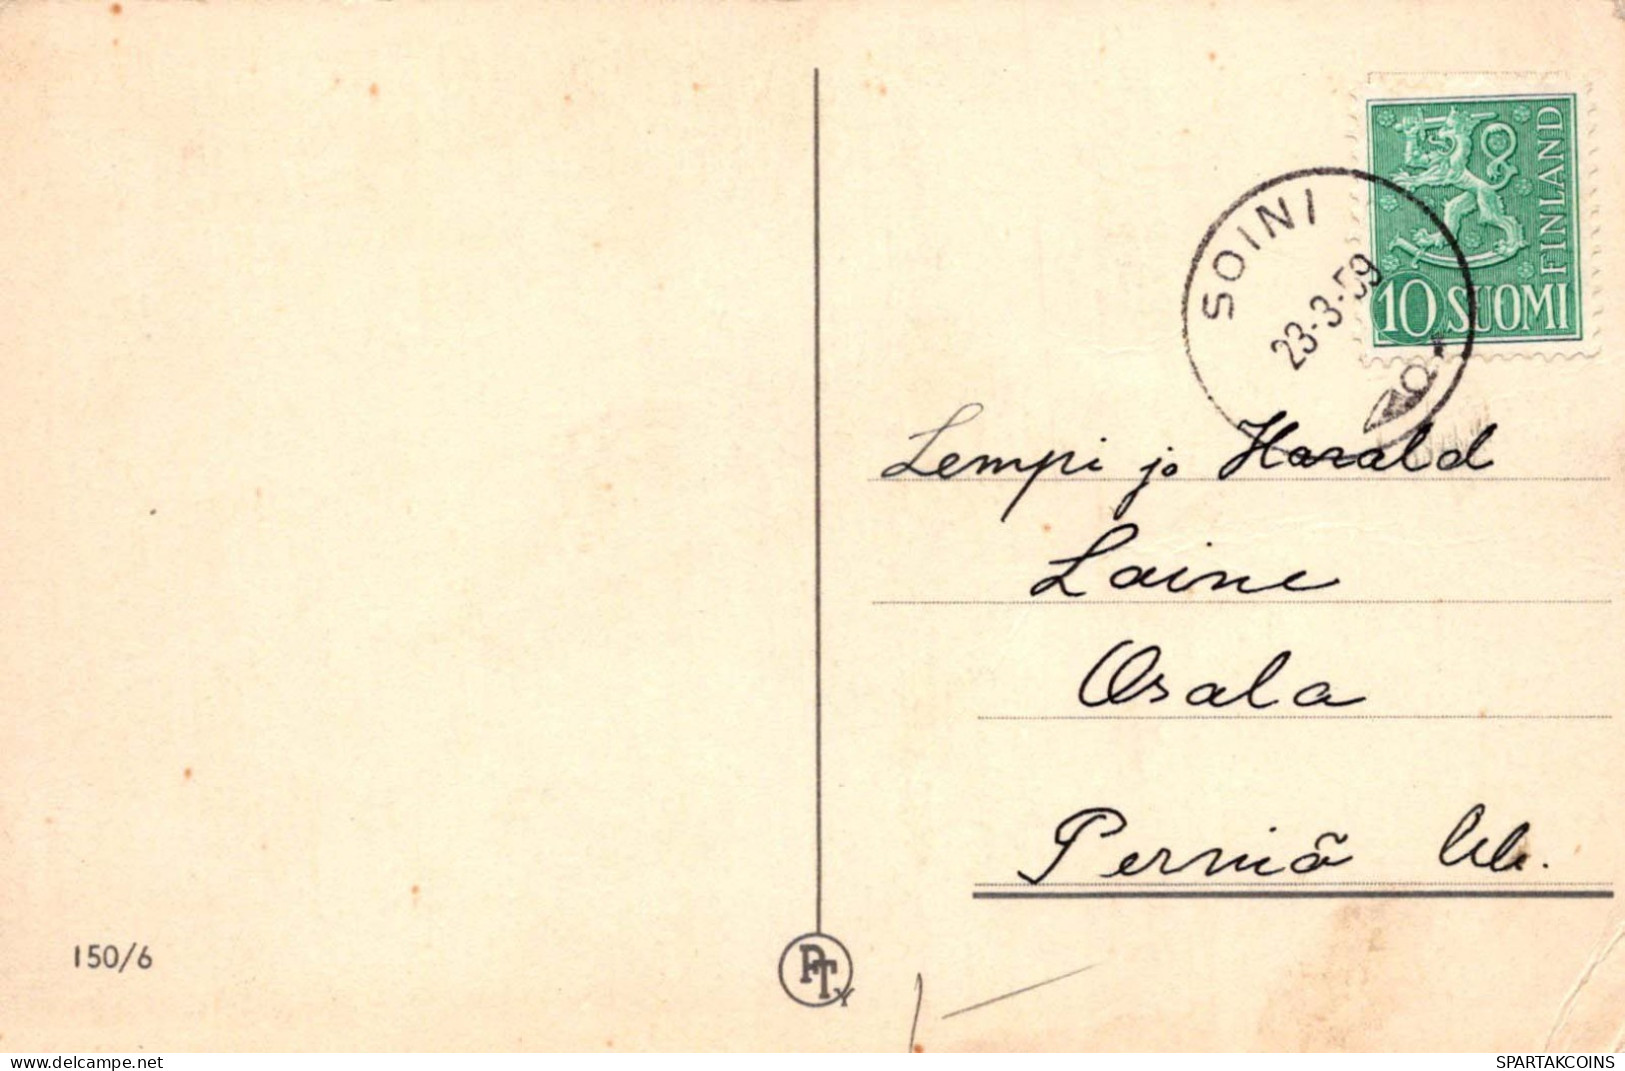 FINLAND
10 SUOMI
SOINI
23-3-59
Lempi ja Harald
Laine
Osala
Perniö
150/6
PTy
www.delcampe.net
SPARTAKCOINS